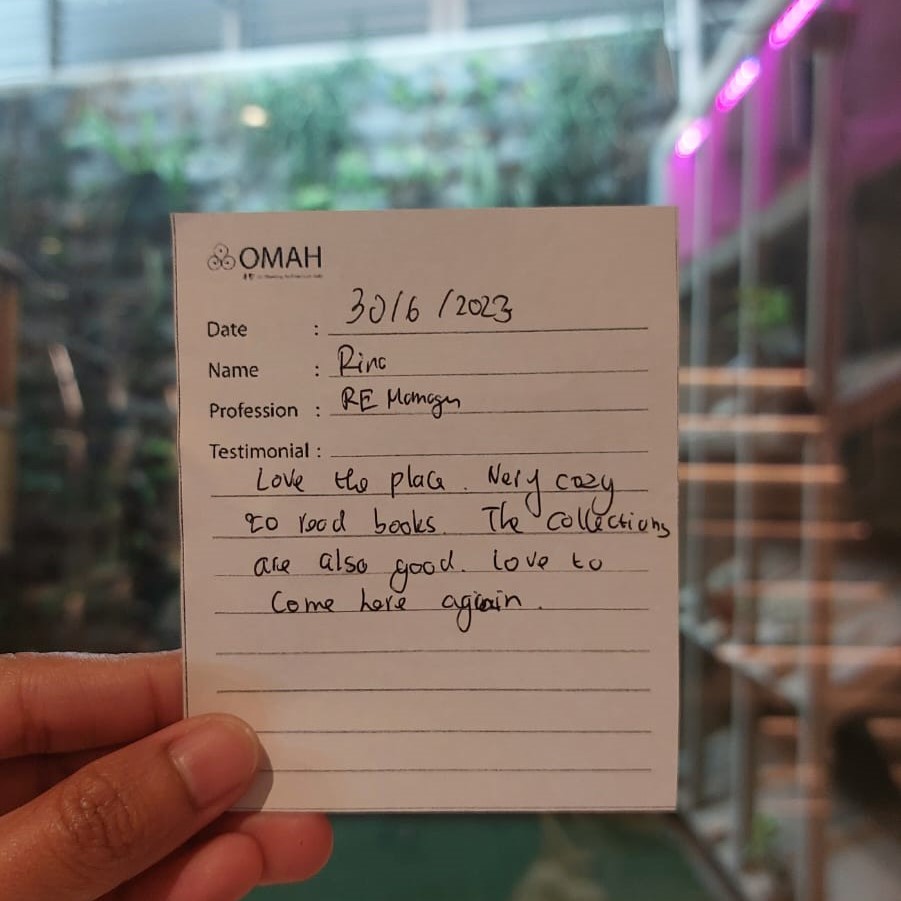 OMAH
Date : 30/6/2023
Name : Rina
Profession : RE Manager
Testimonial :
Love the place. Very cozy
to read books. The collections
are also good. Love to
come here again.